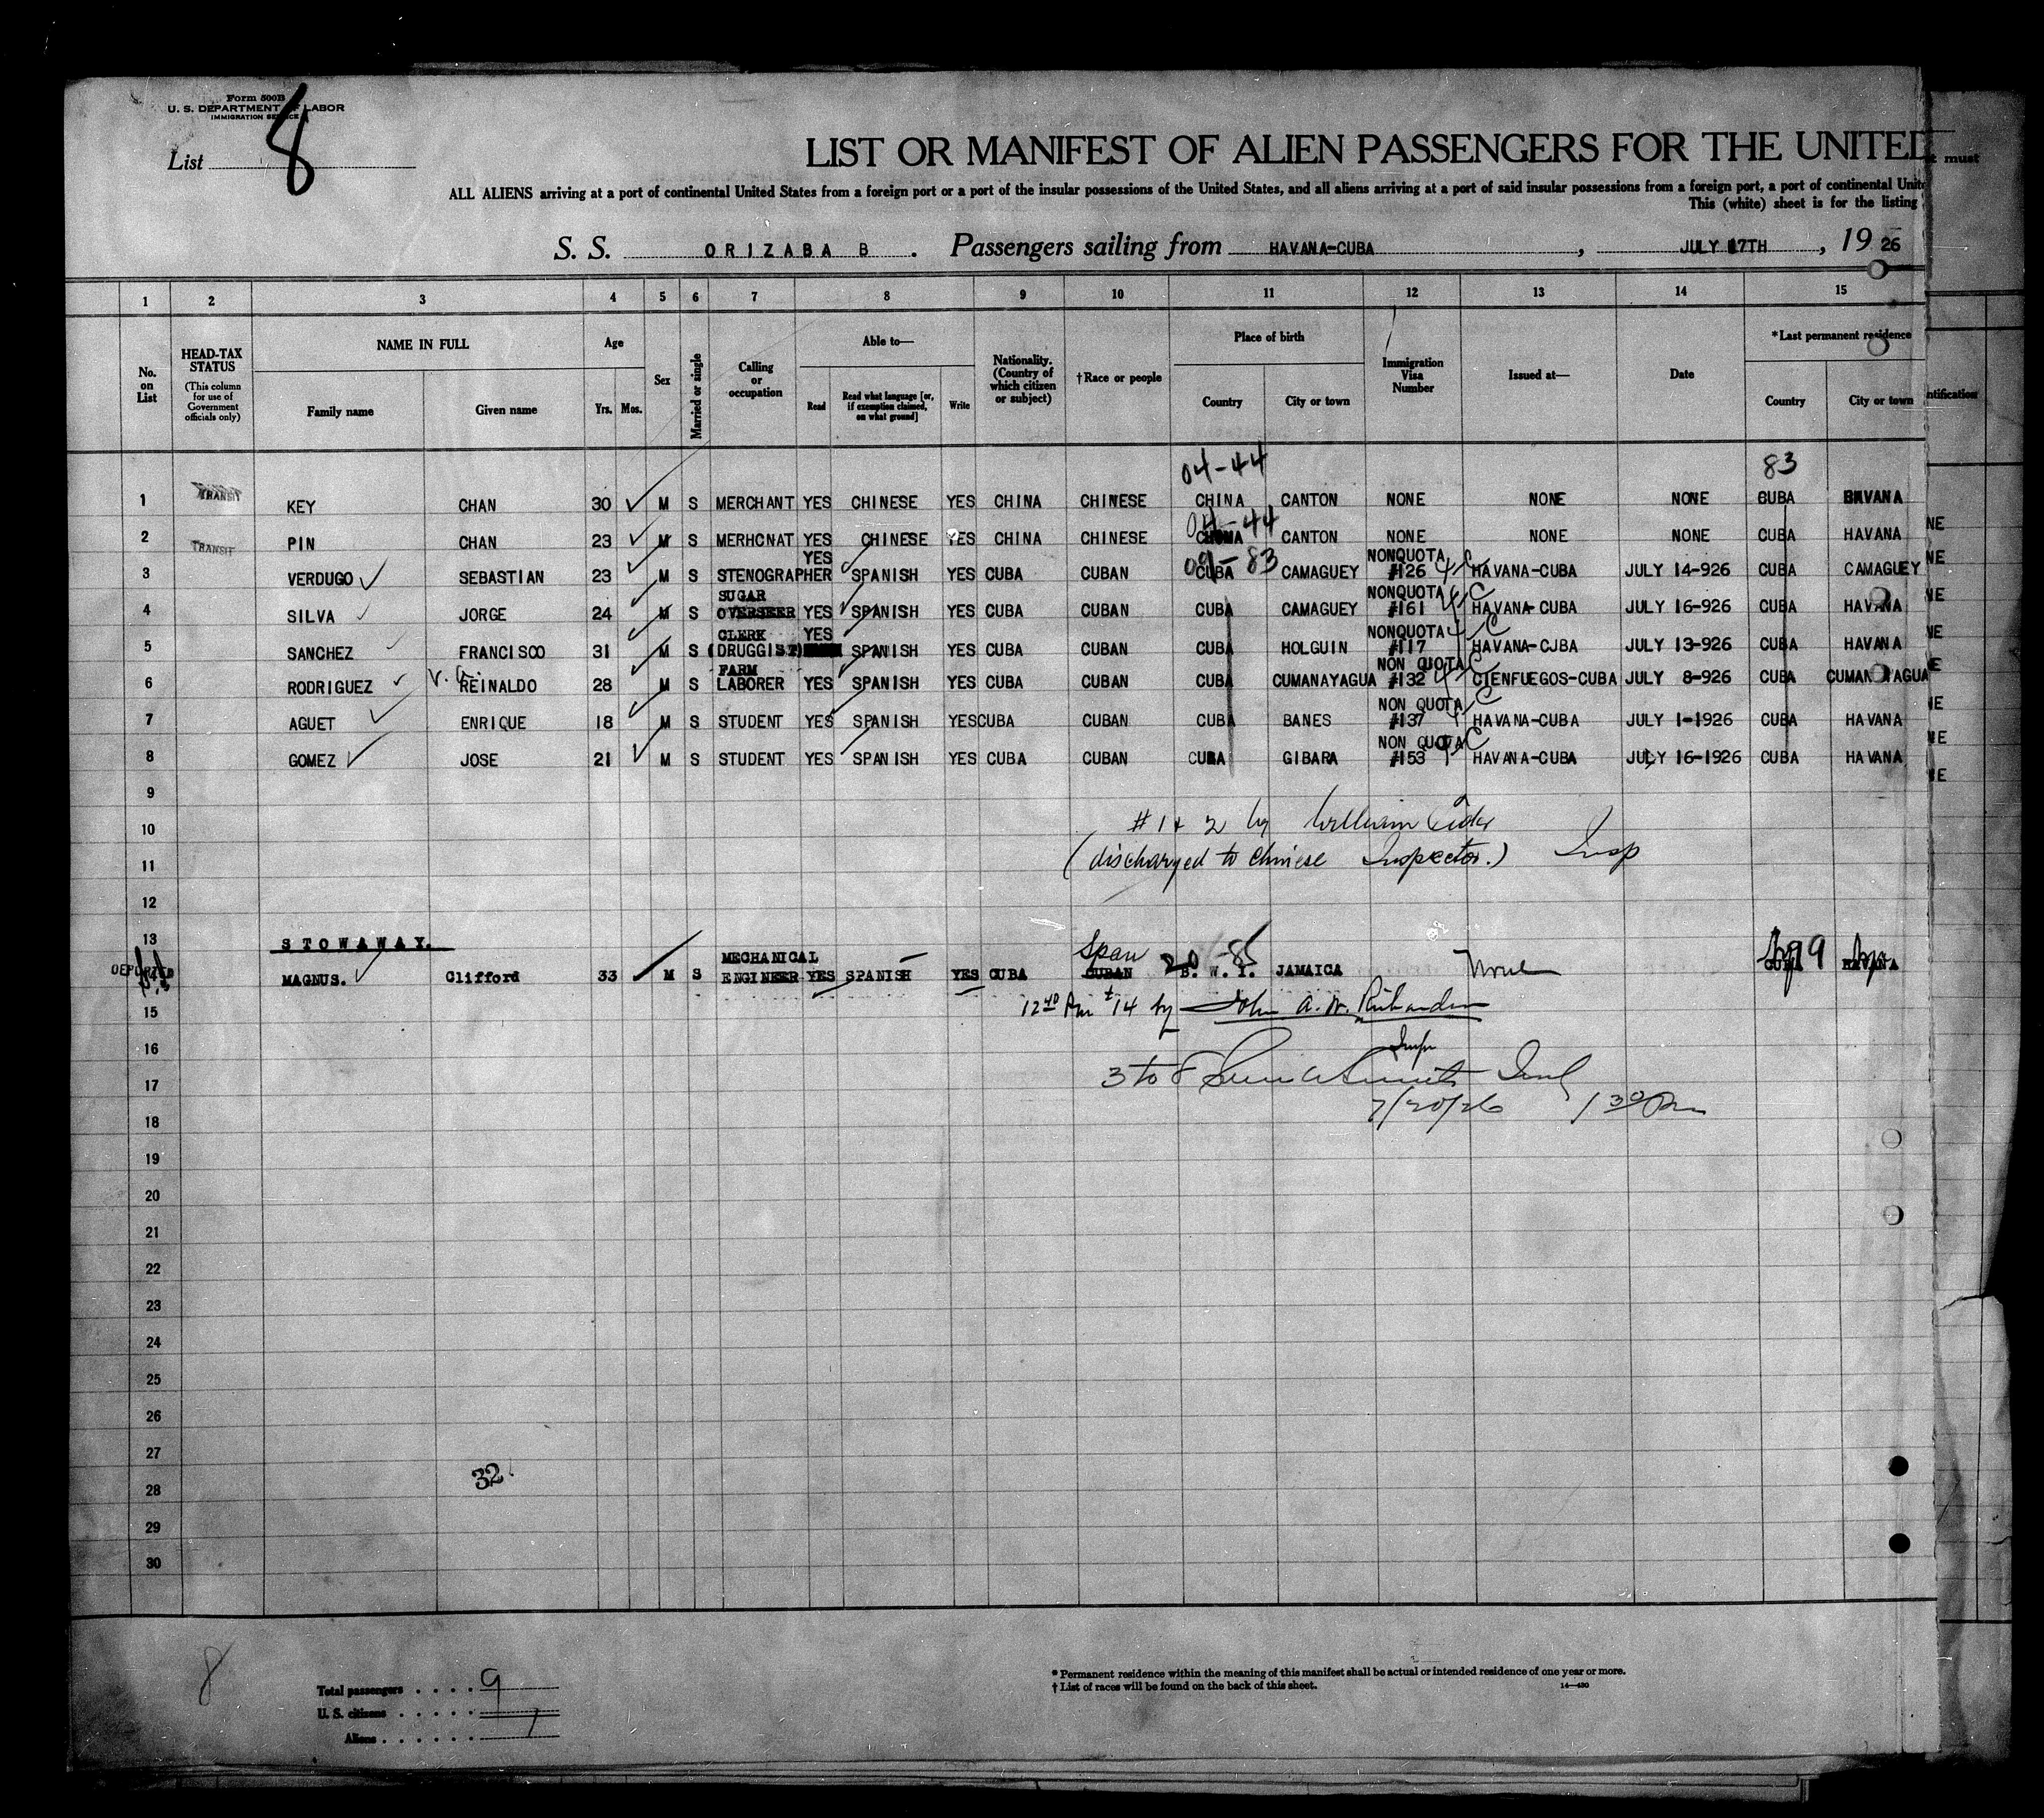 Form 500B
U. S. DEPARTMENT OF LABOR
IMMIGRATION SERVICE
List 8
LIST OR MANIFEST OF ALIEN PASSENGERS FOR THE UNITED
must
ALL ALIENS arriving at a port of continental United States from a foreign port or a port of the insular possessions of the United States, and all aliens arriving at a port of said insular possessions from a foreign port, a port of continental Unite
This (white) sheet is for the listing
S. S. ORIZABA B . Passengers sailing from HAVANA-CUBA , JULY 17TH , 19 26
1 2 3 4 5 6 7 8 9 10 11 12 13 14 15
No. on List
HEAD-TAX STATUS (This column for use of Government officials only)
NAME IN FULL
Family name Given name
Age
Yrs. Mos.
Sex
Married or single
Calling or occupation
Able to—
Read Read what language [or, if exemption claimed, on what ground] Write
Nationality. (Country of which citizen or subject)
†Race or people
Place of birth
Country City or town
Immigration Visa Number
Issued at—
Date
*Last permanent residence
Country City or town
ntification
04-44 83
1 TRANSIT KEY CHAN 30 M S MERCHANT YES CHINESE YES CHINA CHINESE CHINA CANTON NONE NONE NONE CUBA HAVANA
04-44
2 TRANSIT PIN CHAN 23 M S MERHCNAT YES CHINESE YES CHINA CHINESE CHINA CANTON NONE NONE NONE CUBA HAVANA NE
YES 09-83 NONQUOTA
3 VERDUGO SEBASTIAN 23 M S STENOGRAPHER SPANISH YES CUBA CUBAN CUBA CAMAGUEY #126 4/C HAVANA-CUBA JULY 14-926 CUBA CAMAGUEY NE
SUGAR NONQUOTA
4 SILVA JORGE 24 M S OVERSEER YES SPANISH YES CUBA CUBAN CUBA CAMAGUEY #161 4/C HAVANA-CUBA JULY 16-926 CUBA HAVANA NE
CLERK YES NONQUOTA
5 SANCHEZ FRANCISCO 31 M S (DRUGGIST) SPANISH YES CUBA CUBAN CUBA HOLGUIN #117 4/C HAVANA-CJBA JULY 13-926 CUBA HAVANA NE
FARM NON QUOTA
6 RODRIGUEZ REINALDO 28 M S LABORER YES SPANISH YES CUBA CUBAN CUBA CUMANAYAGUA #132 4/C CIENFUEGOS-CUBA JULY 8-926 CUBA CUMANAYAGUA E
NON QUOTA
7 AGUET ENRIQUE 18 M S STUDENT YES SPANISH YES CUBA CUBAN CUBA BANES #137 4/C HAVANA-CUBA JULY 1-1926 CUBA HAVANA NE
NON QUOTA
8 GOMEZ JOSE 21 M S STUDENT YES SPANISH YES CUBA CUBAN CUBA GIBARA #153 4/C HAVANA-CUBA JULY 16-1926 CUBA HAVANA NE
9 NE
10 # 1 & 2 by William
11 (discharged to Chinese Inspector.) Insp
12
13 STOWAWAY.
MECHANICAL Span 20 -85
DEPORTED MAGNUS. Clifford 33 M S ENGINEER YES SPANISH YES CUBA CUBAN B. W. I. JAMAICA None CUBA HAVANA
15 12 40 Pm # 14 by John A. W. Richardson
16 Insp
17 3 to 8
7/20/26 1 30 Pm
18
19
20
21
22
23
24
25
26
27
28 32
29
30
8
Total passengers . . . . 9
U. S. citizens . . . . .
Aliens . . . . . .
* Permanent residence within the meaning of this manifest shall be actual or intended residence of one year or more.
† List of races will be found on the back of this sheet.
14—430